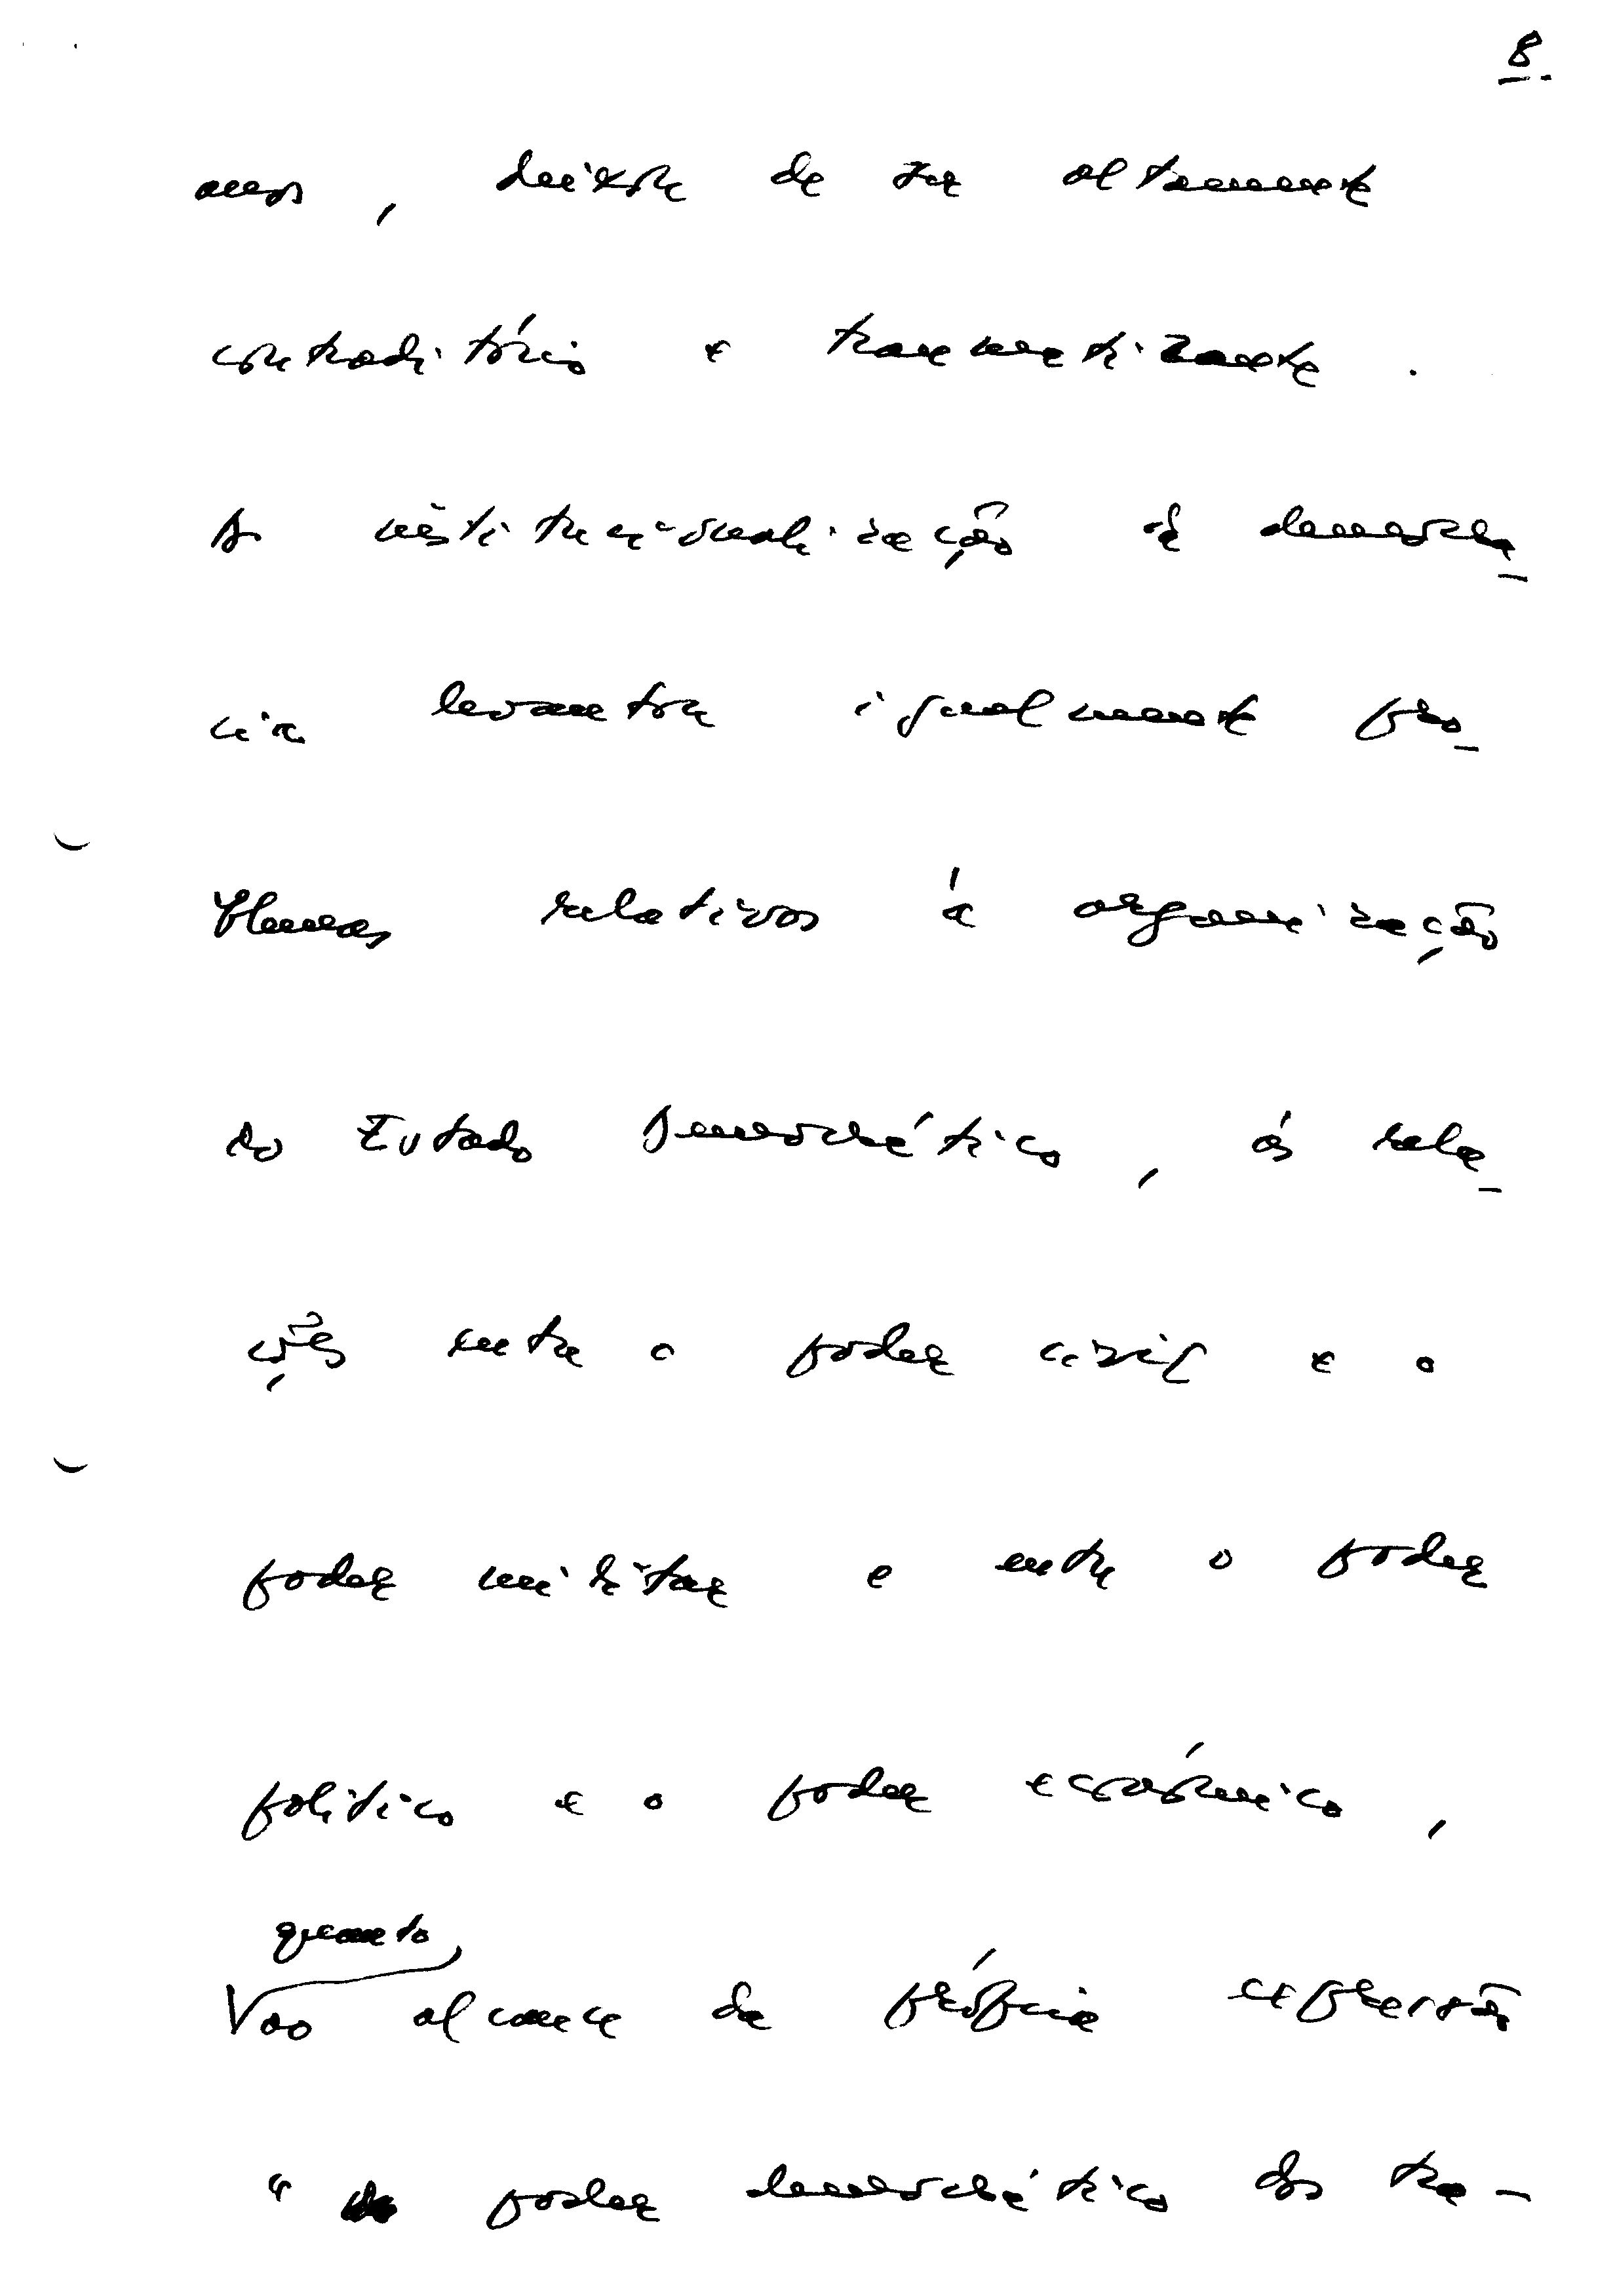 8.
anos, deixou de ser altamente
contraditório e traumatizante.
A institucionalização da democra-
cia levantou igualmente pro-
blemas relativos à organização
do Estado Democrático, às rela-
ções entre o poder civil e o
poder militar e entre o poder
político e o poder económico,
quanto
ao alcance da própria expressão
" poder democrático dos tra-